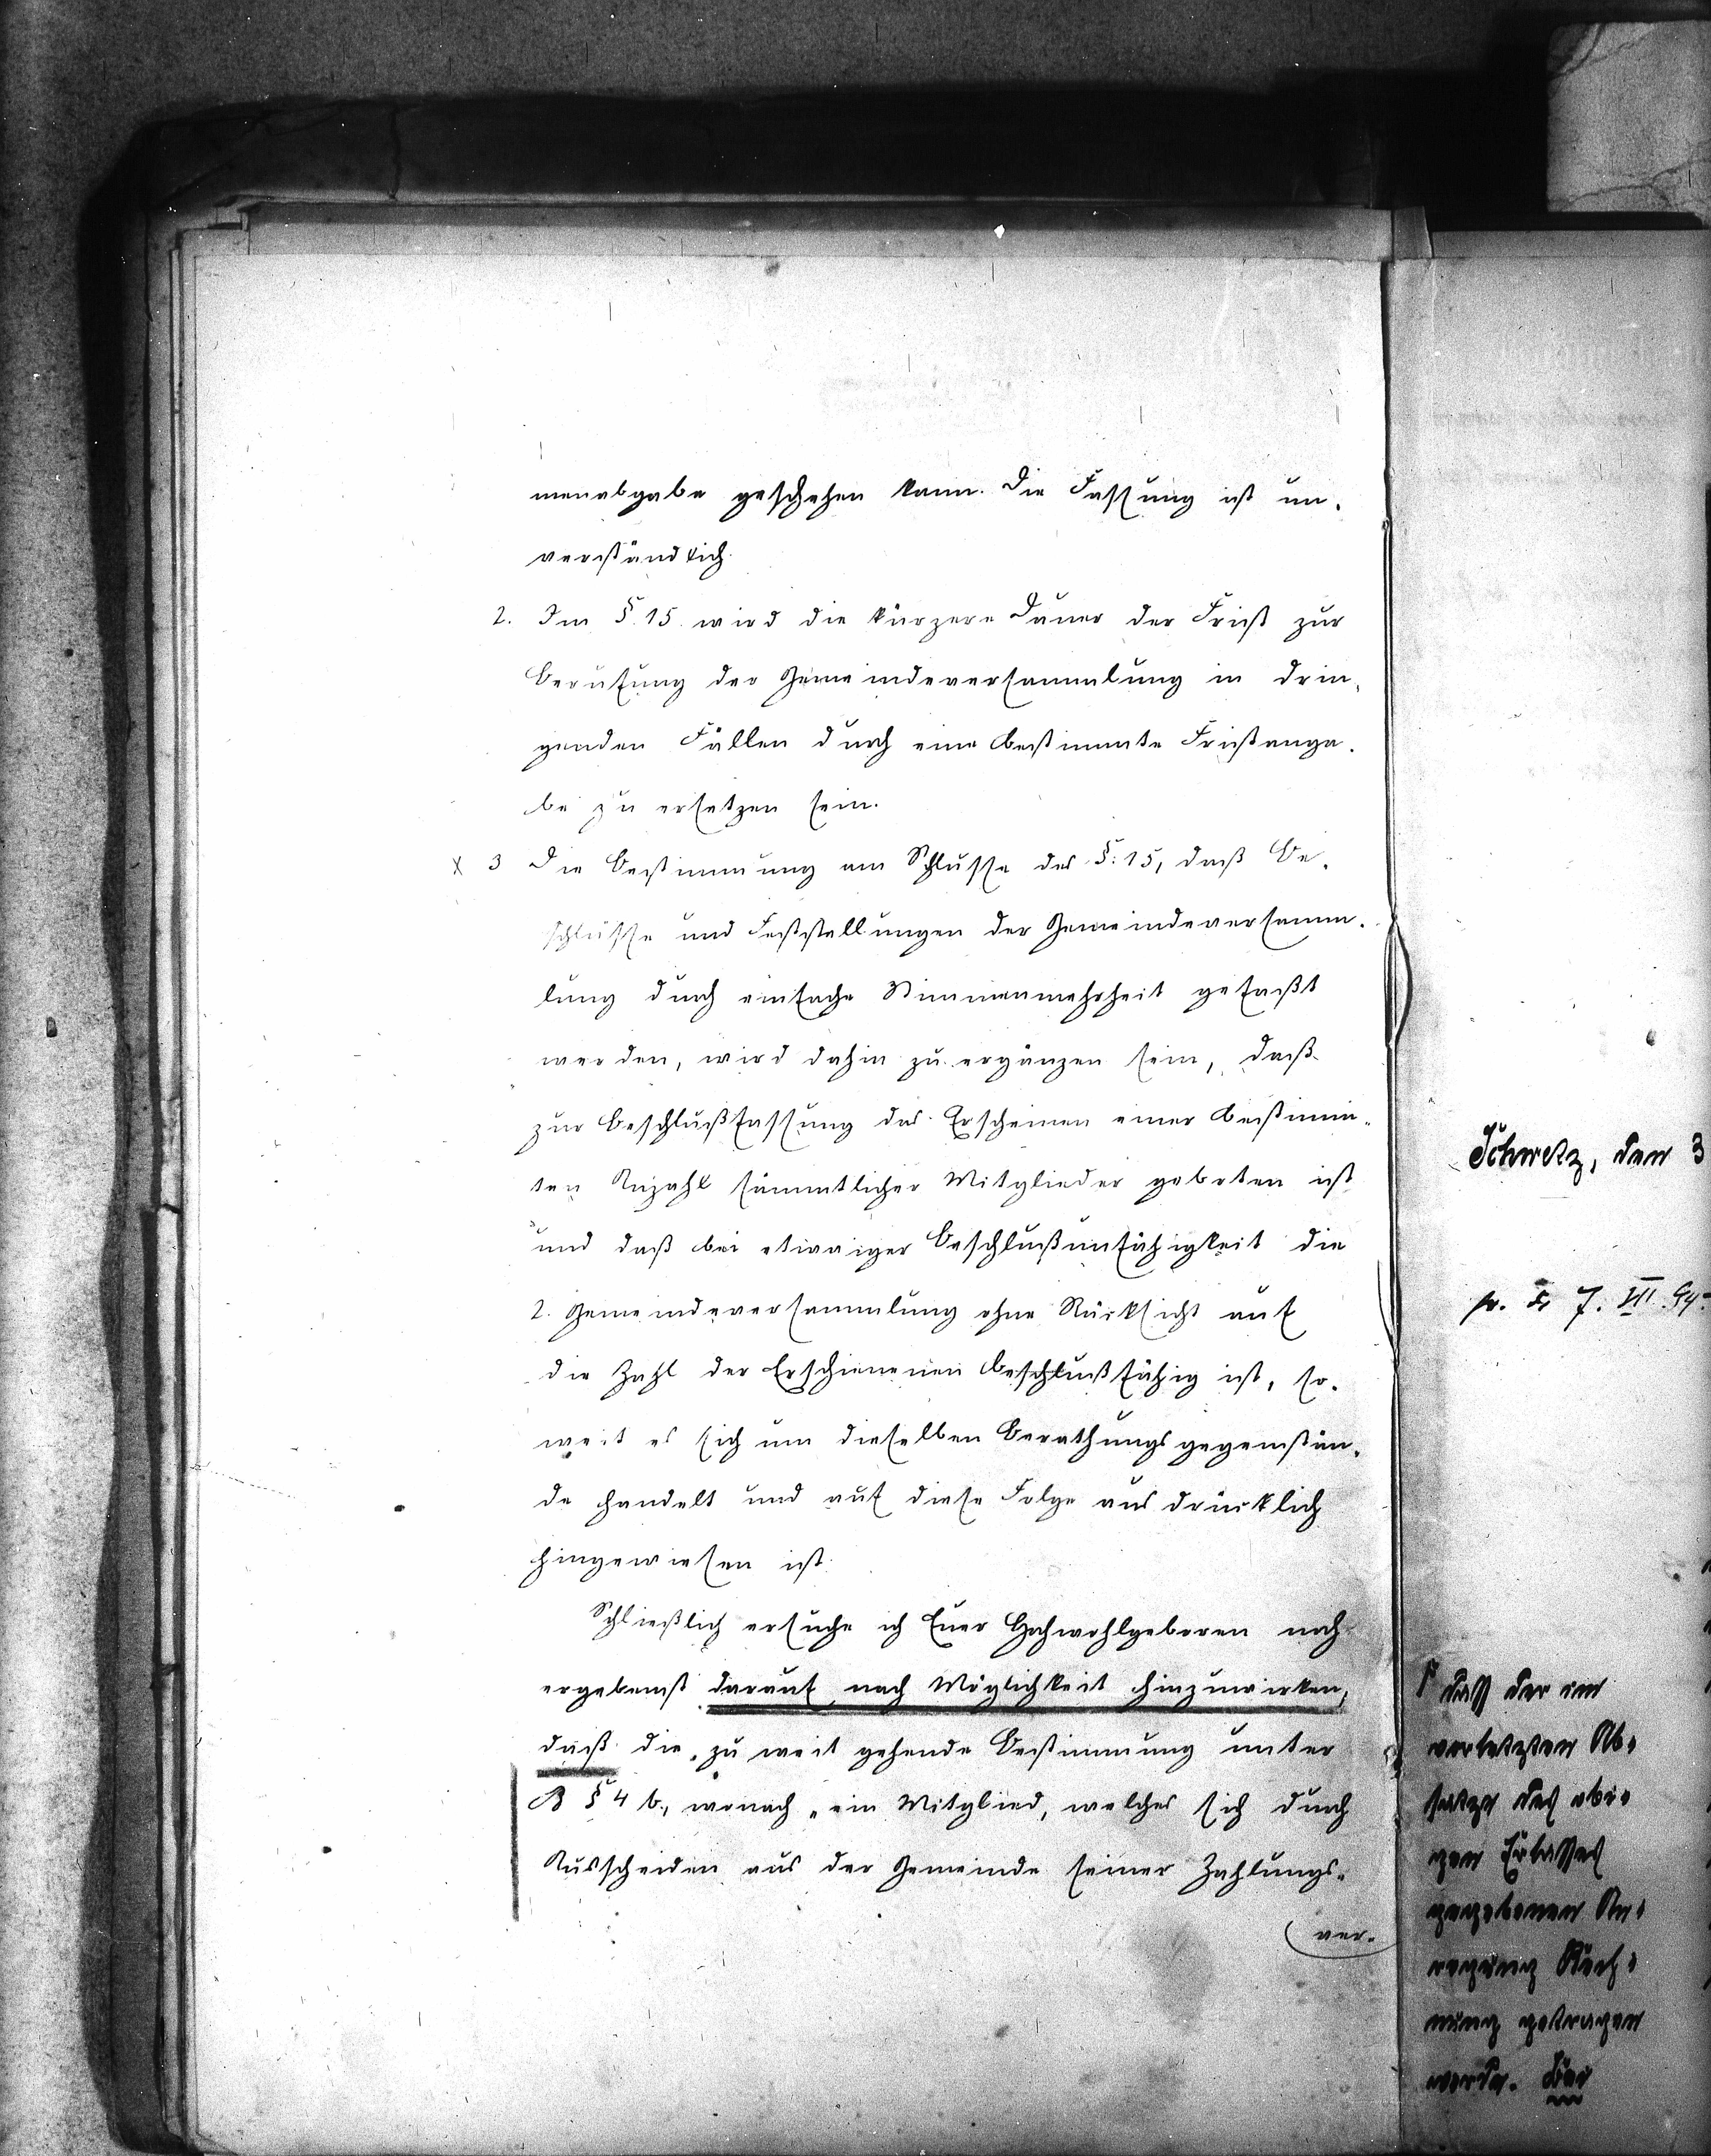 menabgabe geschehen kann. Die Fassung ist un-
verständlich.
2. Im §. 15. wird die kürzere Dauer der Frist zur
Berufung der Gemeindeversammlung in drin-
genden Fällen durch eine bestimmte Fristanga-
be zu ersetzen sein.
x 3 Die Bestimmung am Schlusse des §: 15, daß Be-
schlüsse und Feststellungen der Gemeindeversamm-
lung durch einfache Stimmenmehrheit gefaßt
werden, wird dahin zu ergänzen sein, daß
zur Beschlußfassung das Erscheinen einer bestimm-
ten Anzahl sämmtlicher Mitglieder geboten ist
und daß bei etwaiger Beschlußunfähigkeit die
2. Gemeindeversammlung ohne Rücksicht auf
die Zahl der Erschienenen beschlußfähig ist, so-
weit es sich um dieselben Berathungsgegenstän-
de handelt und auf diese Folge ausdrücklich
hingewiesen ist.
Schließlich ersuche ich Euer Hochwohlgeboren noch
ergebenst darauf nach Möglichkeit hinzuwirken,
daß die zu weit gehende Bestimmung unter
B § 4 b., wonach „ein Mitglied, welches sich durch
Ausscheiden aus der Gemeinde seiner Zahlungs-
ver-
Schwetz, den 3
pr. d. 7. III. 94.
daß der im
vorletzten Ab-
satze des obi-
gen Erlasses
gegebenen An-
regung Rech-
nung getragen
werde. Der